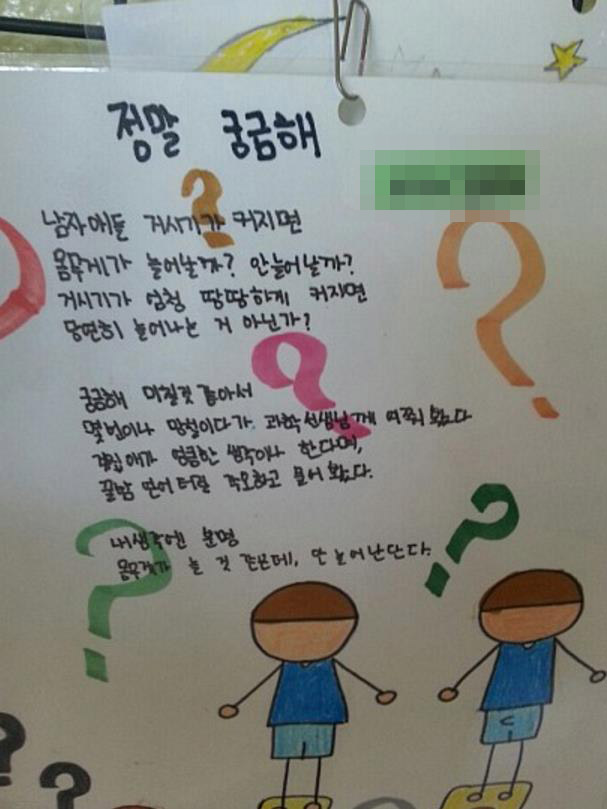 정말 궁금해
남자애들 거시기가 커지면
몸무게가 늘어날까? 안늘어날까?
거시기가 엄청 땅땅하게 커지면
당연히 늘어나는 거 아닌가?
궁금해 미칠것 같아서
몇번이나 망설이다가 과학선생님께 여쭤 봤다
계집애가 엉큼한 생각이나 한다며,
꿀밤 먼어터질 각오하고 물어 봤다.
내생각엔 분명
몸무게가 늘 것 같은데, 안 늘어난단다.